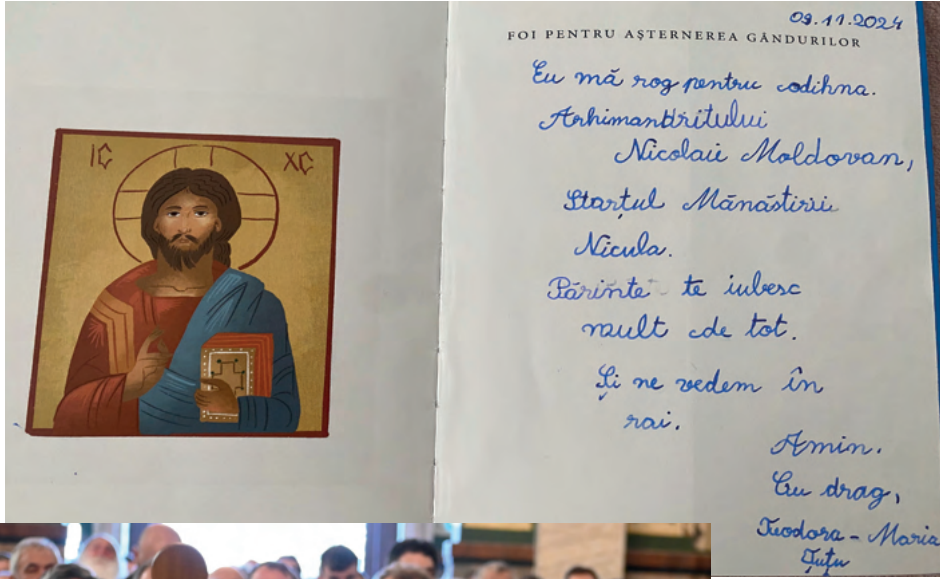 IC XC
09.11.2024
FOI PENTRU AȘTERNEREA GÂNDURILOR
Eu mă rog pentru odihna.
Arhimandritului
Nicolaie Moldovan,
Starțul Mănăstirii
Nicula.
Părinte te iubesc
mult de tot.
Și ne vedem în
rai.
Amin.
Cu drag,
Teodora - Maria
Țuțu